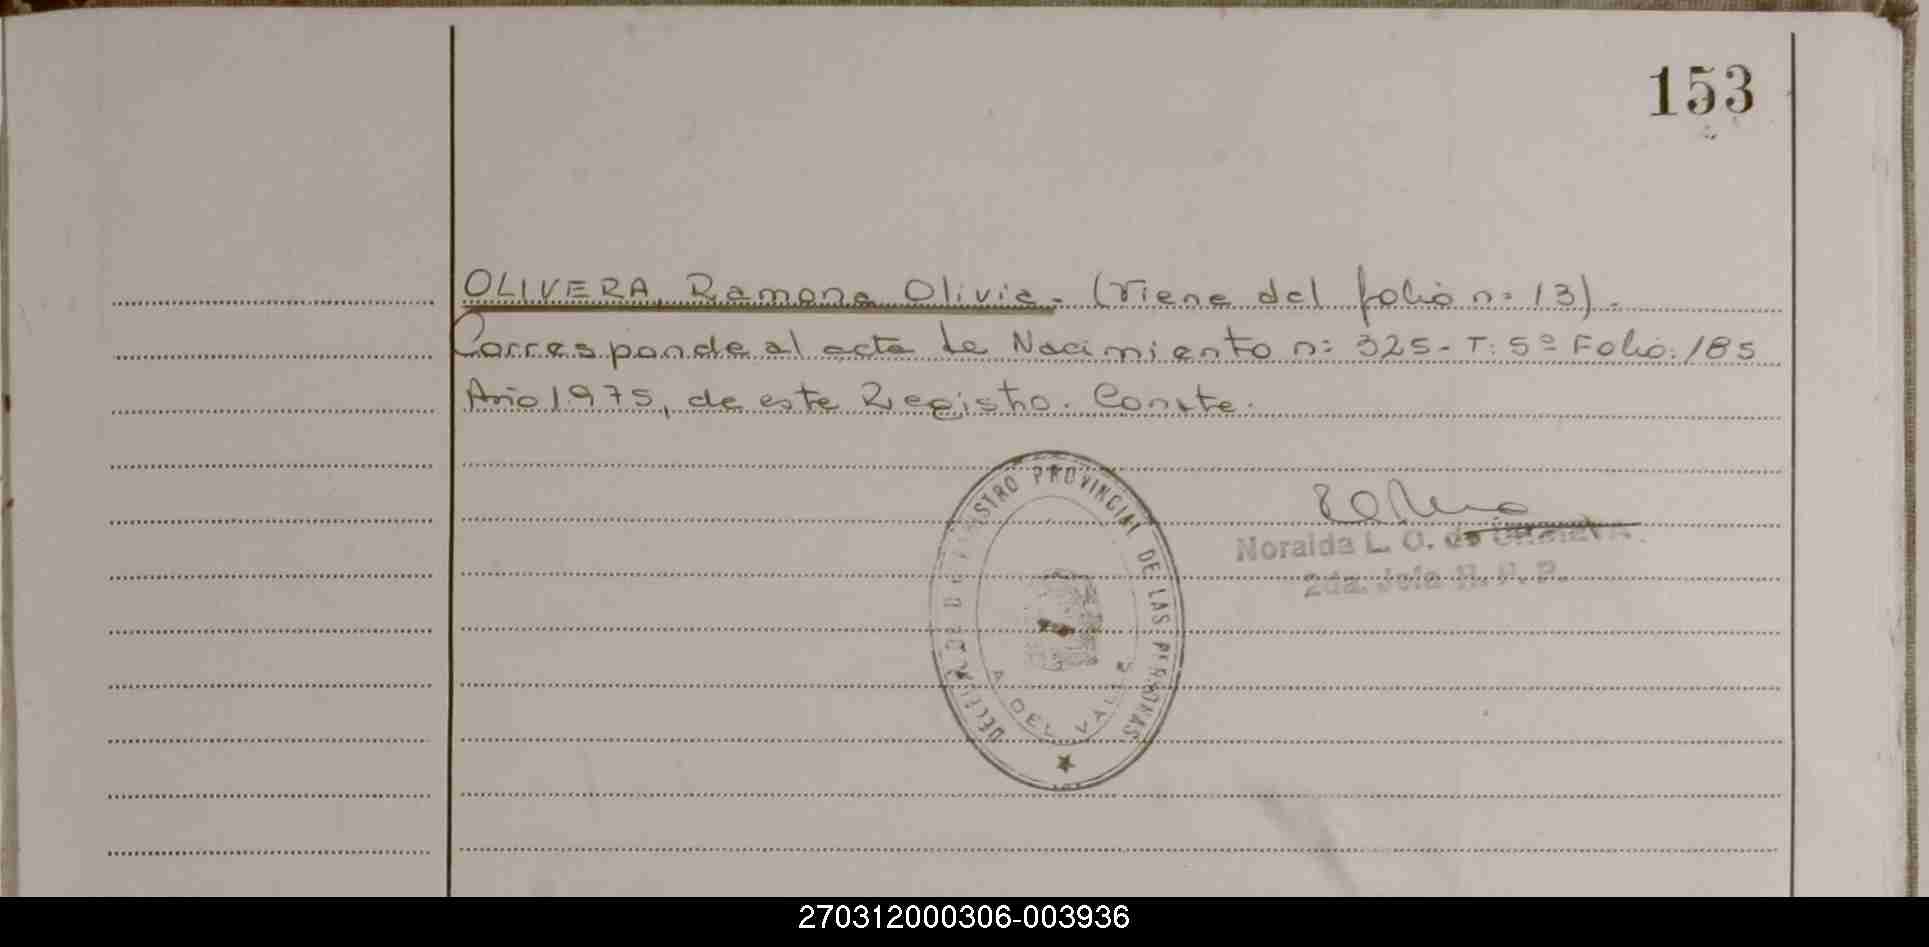 153
OLIVERA, Ramona Olivia. (Viene del folio n: 13).
Corresponde al acta de Nacimiento n: 325- T: 5º Folio: 185
Año 1975, de este Registro. Conste.
REGISTRO PROVINCIAL DE LAS PERSONAS
DEL VALLE
Noraida L. O. de
2da. Jefe R. P. P.
270312000306-003936